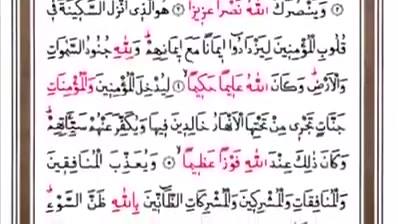 وَيَنْصُرَكَ اللّٰهُ نَصْرًا عَزِيزًا هُوَ الَّذِى اَنْزَلَ السَّكِينَةَ فِى
قُلُوبِ الْمُؤْمِنِينَ لِيَزْدَادُٓوا اِيمَانًا مَعَ اِيمَانِهِمْ وَلِلّٰهِ جُنُودُ السَّمٰوَاتِ
وَالْاَرْضِ وَكَانَ اللّٰهُ عَلِيمًا حَكِيمًا لِيُدْخِلَ الْمُؤْمِنِينَ وَالْمُؤْمِنَاتِ
جَنَّاتٍ تَجْرِى مِنْ تَحْتِهَا الْاَنْهَارُ خَالِدِينَ فِيهَا وَيُكَفِّرَ عَنْهُمْ سَيِّـَٔاتِهِمْ
وَكَانَ ذٰلِكَ عِنْدَ اللّٰهِ فَوْزًا عَظِيمًا وَيُعَذِّبَ الْمُنَافِقِينَ
وَالْمُنَافِقَاتِ وَالْمُشْرِكِينَ وَالْمُشْرِكَاتِ الظَّٓانِّينَ بِاللّٰهِ ظَنَّ السَّوْءِ